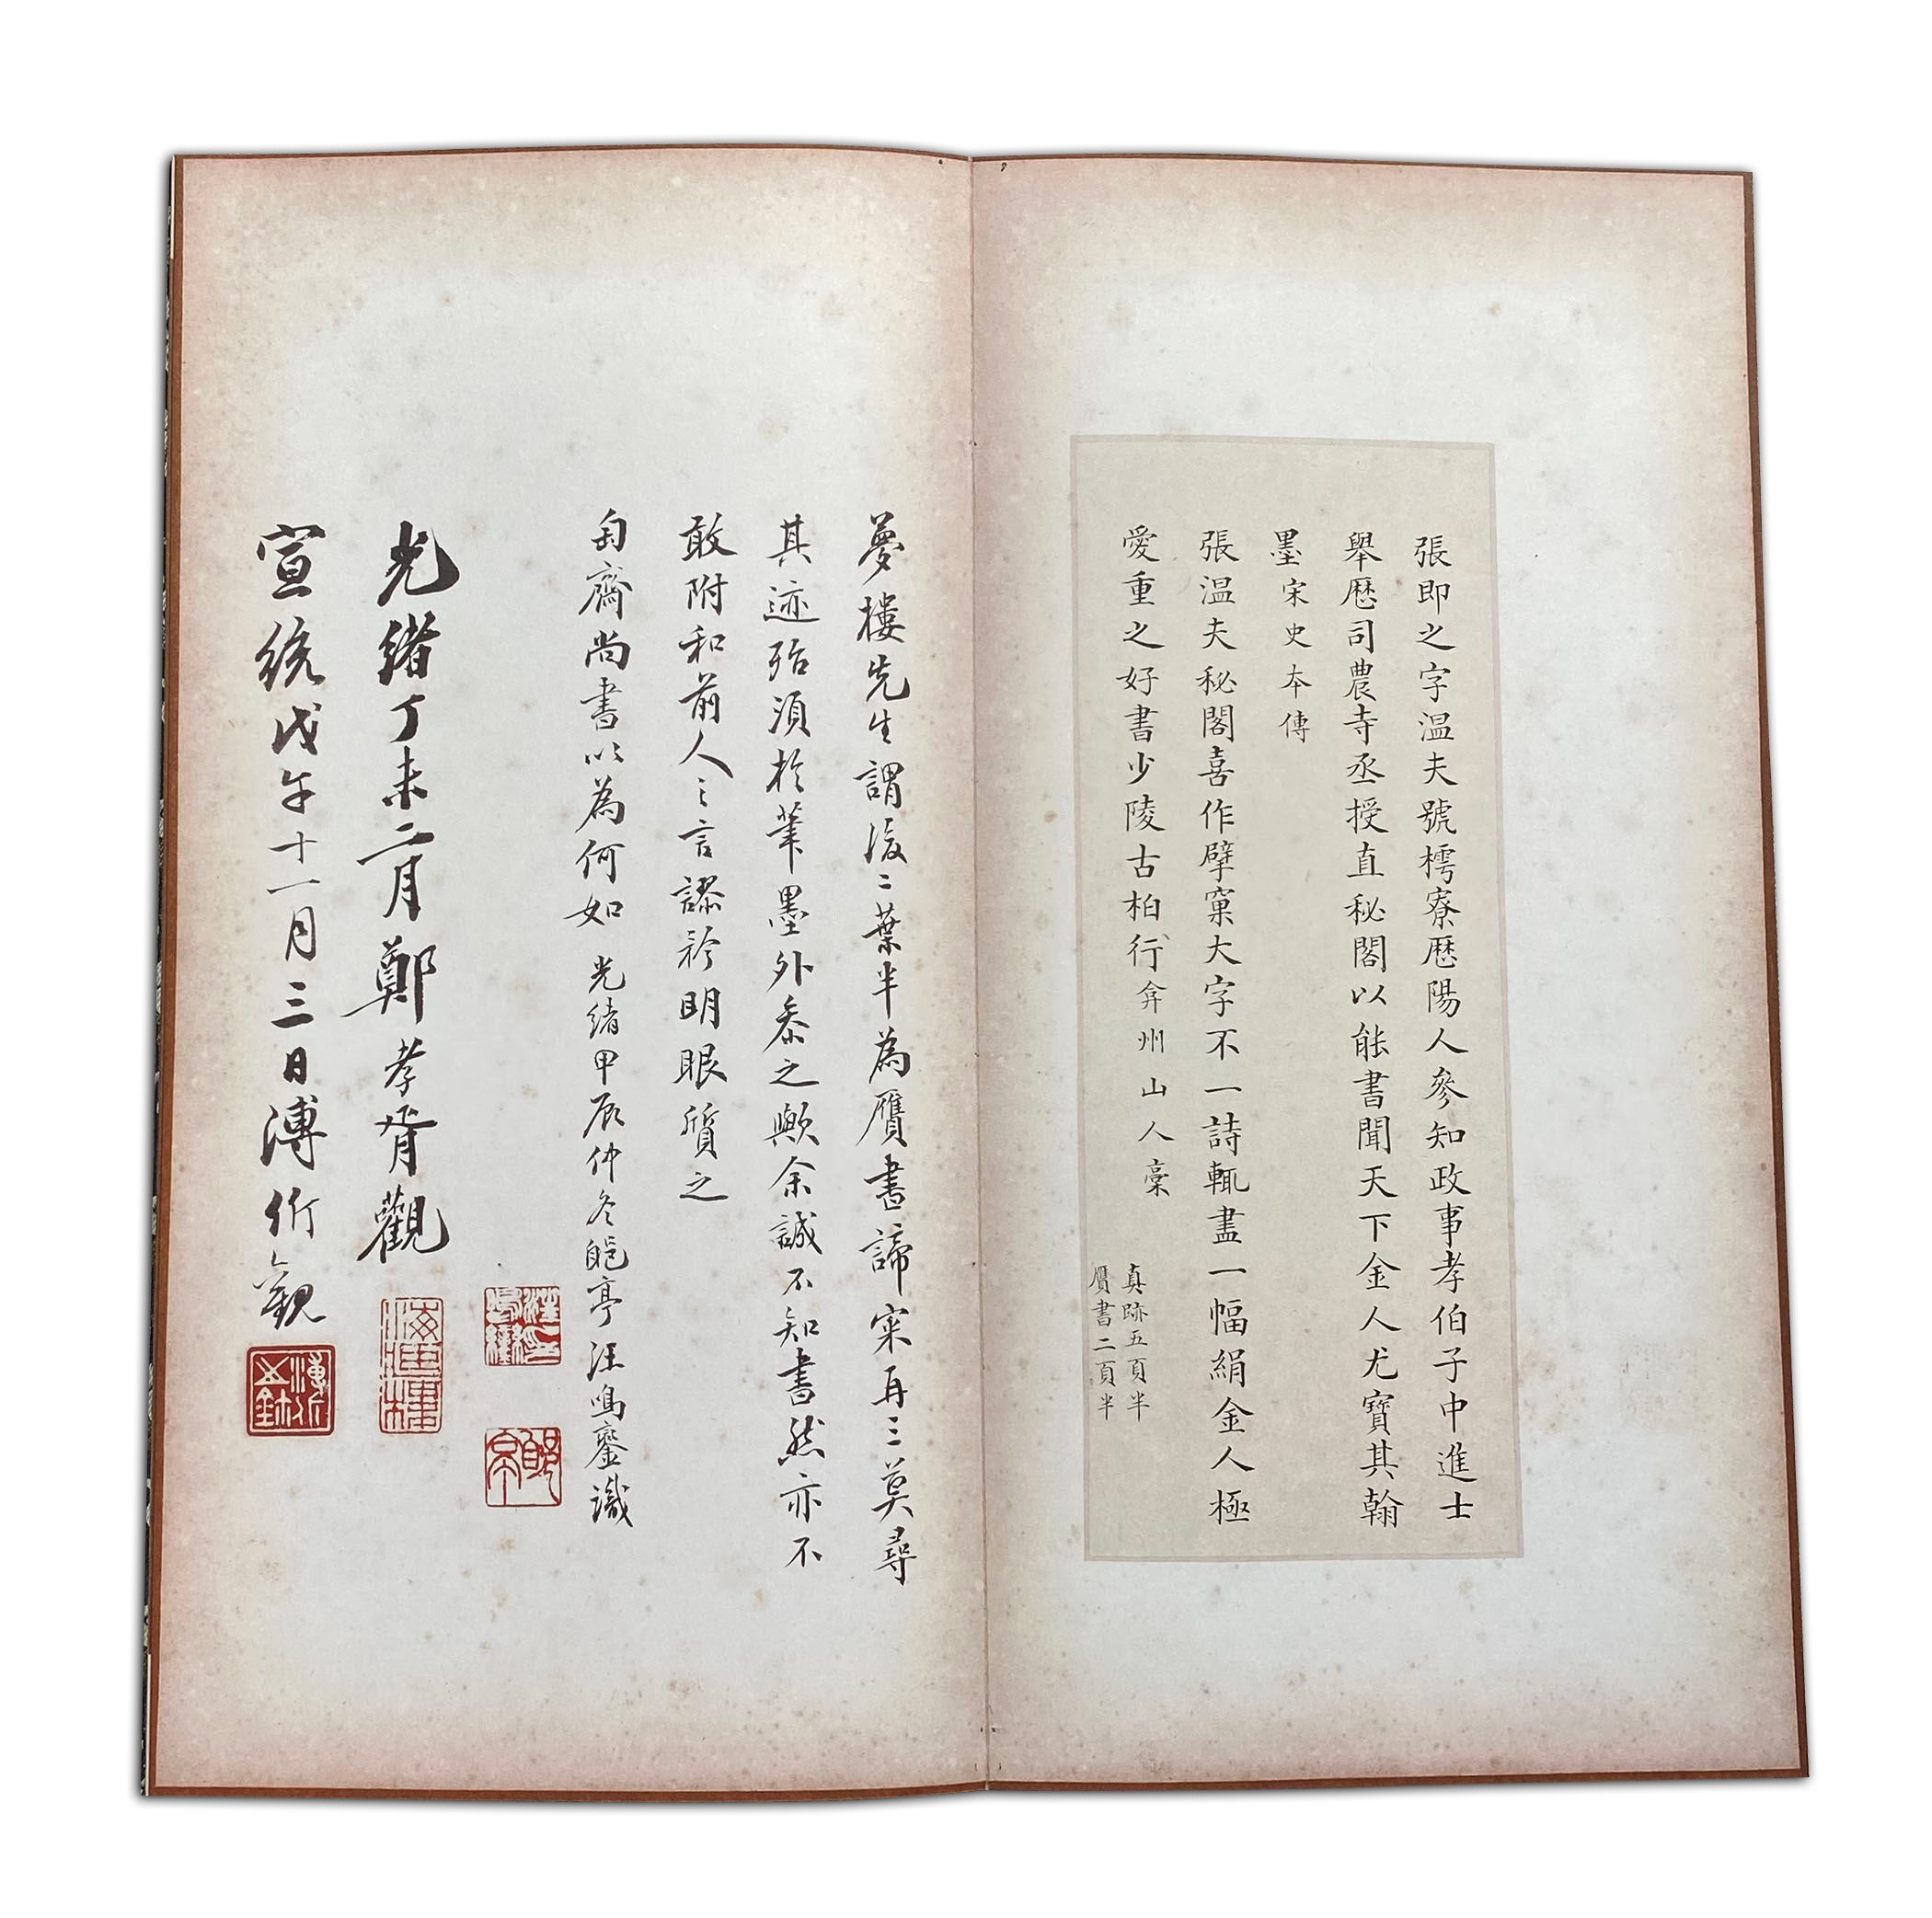 張即之字温夫號樗寮歷陽人參知政事孝伯子中進士
舉歷司農寺丞授直秘閣以能書聞天下金人尤寶其翰
墨宋史本傳
張温夫秘閣喜作擘窠大字不一詩輒盡一幅絹金人極
愛重之好書少陵古柏行弇州山人稾
真跡五頁半
贋書二頁半
夢樓先生謂後二葉半為贋書諦宷再三莫尋
其迹殆須於筆墨外叅之歟余誠不知書然亦不
敢附和前人之言謬矜明眼質之
匋齋尚書以為何如 光緒甲辰仲冬郋亭汪鳴鑾識
光緒丁未二月鄭孝胥觀
宣統戊午十一月三日溥伒觀
海藏樓